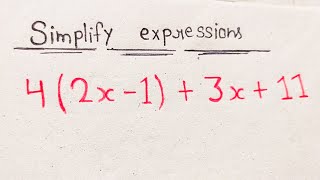 Simplify expressions
4(2x-1) + 3x + 11